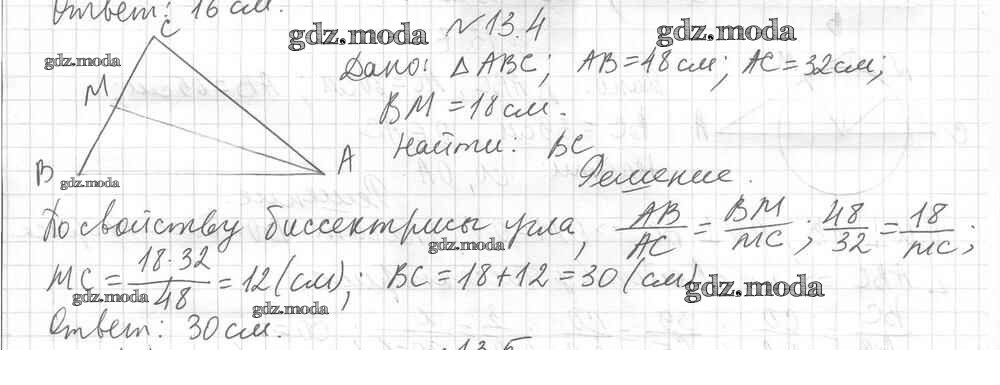 Ответ: 16 см.
gdz.moda
№ 13.4
gdz.moda
C
gdz.moda
Дано: △ ABC; AB = 48 см; AC = 32 см;
M
BM = 18 см.
Найти: BC
B
A
gdz.moda
Решение.
По свойству биссектрисы угла, AB/AC = BM/MC; 48/32 = 18/MC;
gdz.moda
MC = 18·32/48 = 12 (см); BC = 18 + 12 = 30 (см)
gdz.moda
gdz.moda
gdz.moda
Ответ: 30 см.